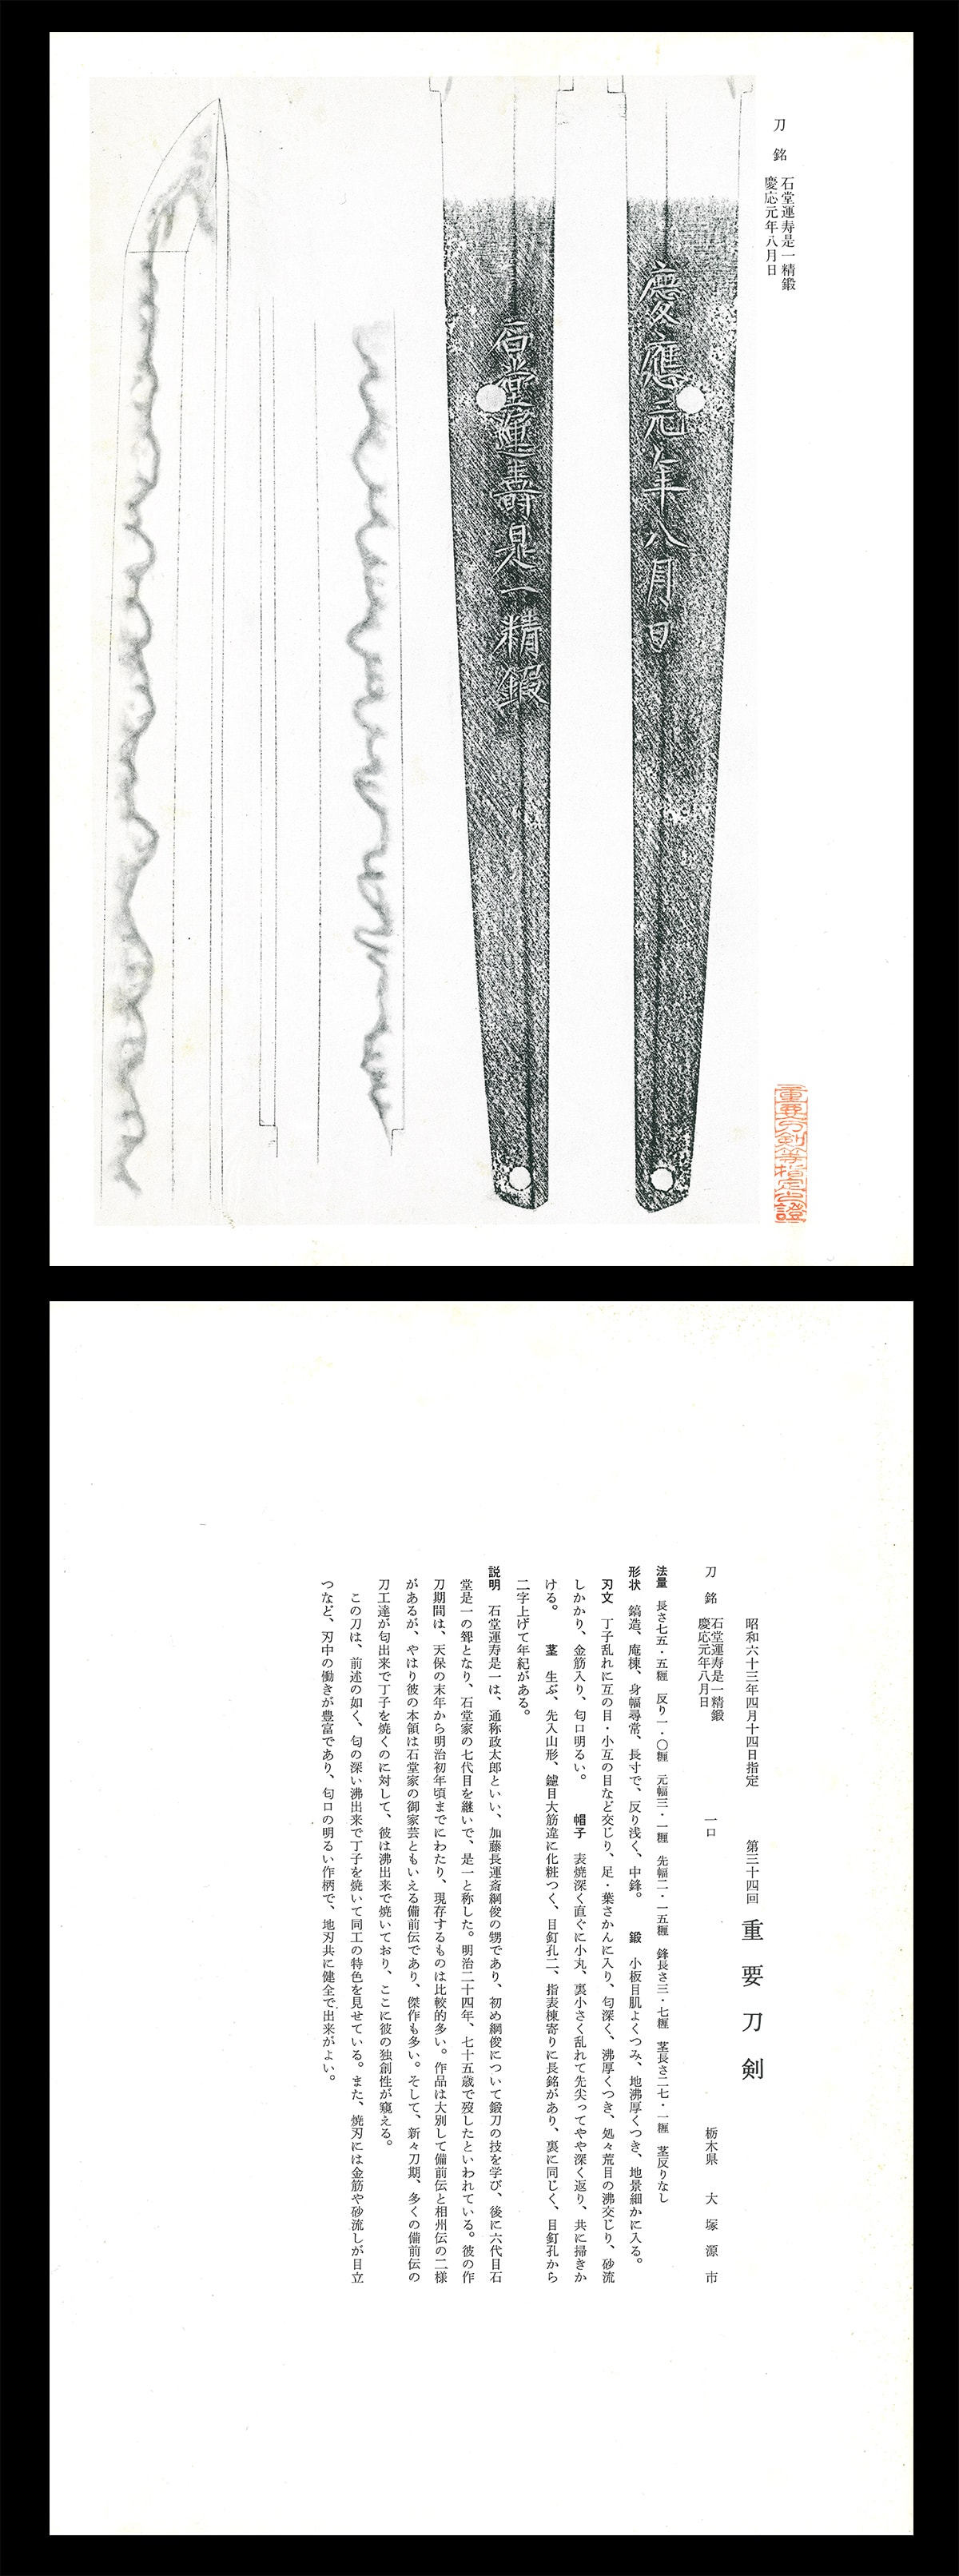 刀 銘 石堂運寿是一精鍛
慶応元年八月日
慶應元年八月日
石堂運壽是一精鍛
重要刀剣等指定之證
昭和六十三年四月十四日指定 第三十四回 重要刀剣
刀 銘 石堂運寿是一精鍛
慶応元年八月日 一口 栃木県 大塚源市
法量 長さ七五・五糎 反り一・〇糎 元幅三・一糎 先幅二・一五糎 鋒長さ三・七糎 茎長さ二七・一糎 茎反りなし
形状 鎬造、庵棟、身幅尋常、長寸で、反り浅く、中鋒。 鍛 小板目肌よくつみ、地沸厚くつき、地景細かに入る。
刃文 丁子乱れに互の目・小互の目など交じり、足・葉さかんに入り、匂深く、沸厚くつき、処々荒目の沸交じり、砂流
しかかり、金筋入り、匂口明るい。 帽子 表焼深く直ぐに小丸、裏小さく乱れて先尖ってやや深く返り、共に掃きか
ける。 茎 生ぶ、先入山形、鑢目大筋違に化粧つく、目釘孔二、指表棟寄りに長銘があり、裏に同じく、目釘孔から
二字上げて年紀がある。
説明 石堂運寿是一は、通称政太郎といい、加藤長運斎綱俊の甥であり、初め綱俊について鍛刀の技を学び、後に六代目石
堂是一の聟となり、石堂家の七代目を継いで、是一と称した。明治二十四年、七十五歳で歿したといわれている。彼の作
刀期間は、天保の末年から明治初年頃までにわたり、現存するものは比較的多い。作品は大別して備前伝と相州伝の二様
があるが、やはり彼の本領は石堂家の御家芸ともいえる備前伝であり、傑作も多い。そして、新々刀期、多くの備前伝の
刀工達が匂出来で丁子を焼くのに対して、彼は沸出来で焼いており、ここに彼の独創性が窺える。
この刀は、前述の如く、匂の深い沸出来で丁子を焼いて同工の特色を見せている。また、焼刃には金筋や砂流しが目立
つなど、刃中の働きが豊富であり、匂口の明るい作柄で、地刃共に健全で出来がよい。